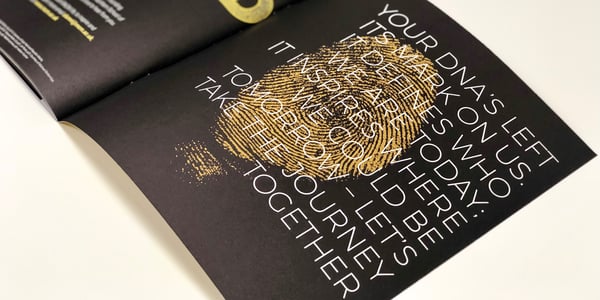 YOUR DNA'S LEFT
ITS MARK ON US.
IT DEFINES WHO
WE ARE TODAY;
IT INSPIRES WHERE
WE COULD BE
TOMORROW – LET'S
TAKE THE JOURNEY
TOGETHER